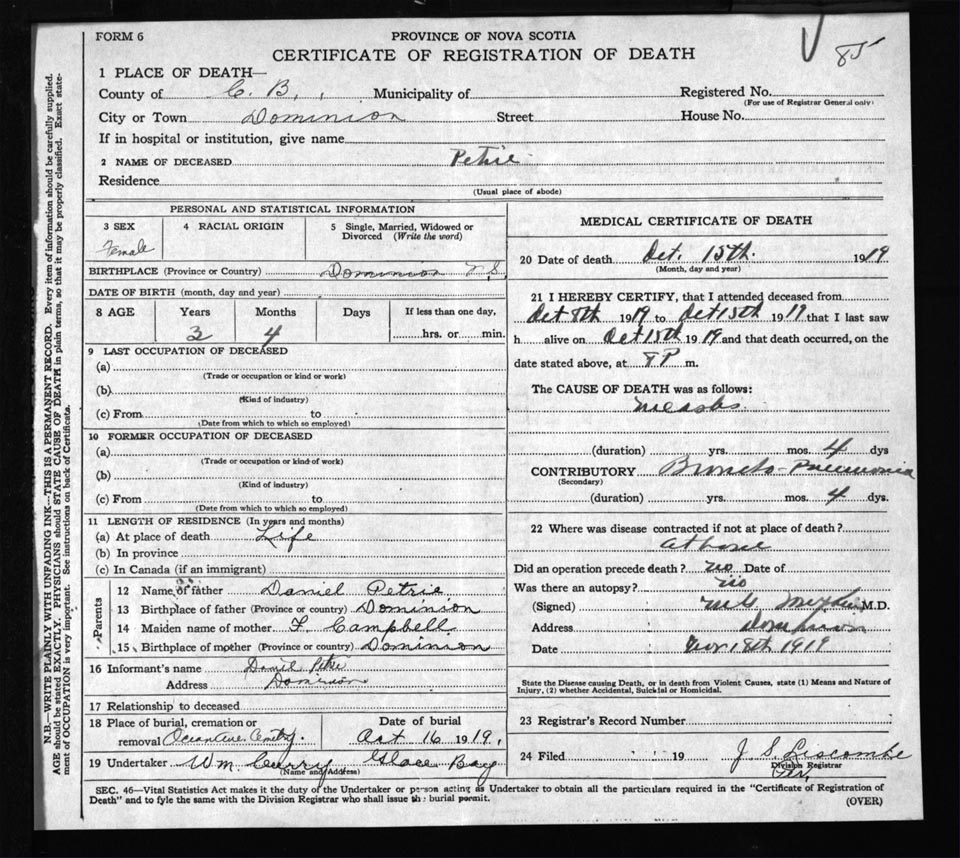 FORM 6
PROVINCE OF NOVA SCOTIA
CERTIFICATE OF REGISTRATION OF DEATH
85
1 PLACE OF DEATH—
County of C. B. Municipality of Registered No.
(For use of Registrar General only)
City or Town Dominion Street House No.
If in hospital or institution, give name
2 NAME OF DECEASED Petrie
Residence
(Usual place of abode)
PERSONAL AND STATISTICAL INFORMATION
3 SEX 4 RACIAL ORIGIN 5 Single, Married, Widowed or
Divorced (Write the word)
Female
BIRTHPLACE (Province or Country) Dominion
DATE OF BIRTH (month, day and year)
8 AGE Years Months Days If less than one day,
3 4 hrs. or min.
9 LAST OCCUPATION OF DECEASED
(a)
(Trade or occupation or kind or work)
(b)
(Kind of industry)
(c) From to
(Date from which to which so employed)
10 FORMER OCCUPATION OF DECEASED
(a)
(Trade or occupation or kind of work)
(b)
(Kind of industry)
(c) From to
(Date from which to which so employed)
11 LENGTH OF RESIDENCE (In years and months)
(a) At place of death Life
(b) In province
(c) In Canada (if an immigrant)
Parents
12 Name of father Daniel Petrie
13 Birthplace of father (Province or country) Dominion
14 Maiden name of mother F. Campbell
15 Birthplace of mother (Province or country) Dominion
16 Informant's name Daniel Petrie
Address Dominion
17 Relationship to deceased
18 Place of burial, cremation or Date of burial
removal Ocean Ave. Cemetry. Oct 16 1919,
19 Undertaker Wm Curry Glace Bay
(Name and Address)
MEDICAL CERTIFICATE OF DEATH
20 Date of death Oct. 15th. 1919
(Month, day and year)
21 I HEREBY CERTIFY, that I attended deceased from
Oct 8th 1919 to Oct 15th 1919 that I last saw
h alive on Oct 15th 1919 and that death occurred, on the
date stated above, at 8 P m.
The CAUSE OF DEATH was as follows:
Measles
(duration) yrs. mos. 4 dys
CONTRIBUTORY Broncho-Pneumonia
(Secondary)
(duration) yrs. mos. 4 dys.
22 Where was disease contracted if not at place of death?
at home
Did an operation precede death? no Date of
Was there an autopsy? no
(Signed) M.D.
Address Dominion
Date Nov 18th 1919
State the Disease causing Death, or in death from Violent Causes, state (1) Means and Nature of
Injury, (2) whether Accidental, Suicidal or Homicidal.
23 Registrar's Record Number
24 Filed 19 J. S. Liscombe
Division Registrar
SEC. 46—Vital Statistics Act makes it the duty of the Undertaker or person acting as Undertaker to obtain all the particulars required in the "Certificate of Registration of
Death" and to fyle the same with the Division Registrar who shall issue the burial permit.
(OVER)
N.B.—WRITE PLAINLY WITH UNFADING INK—THIS IS A PERMANENT RECORD. Every item of information should be carefully supplied.
AGE should be stated EXACTLY. PHYSICIANS should STATE CAUSE OF DEATH in plain terms, so that it may be properly classified. Exact state-
ment of OCCUPATION is very important. See instructions on back of Certificate.